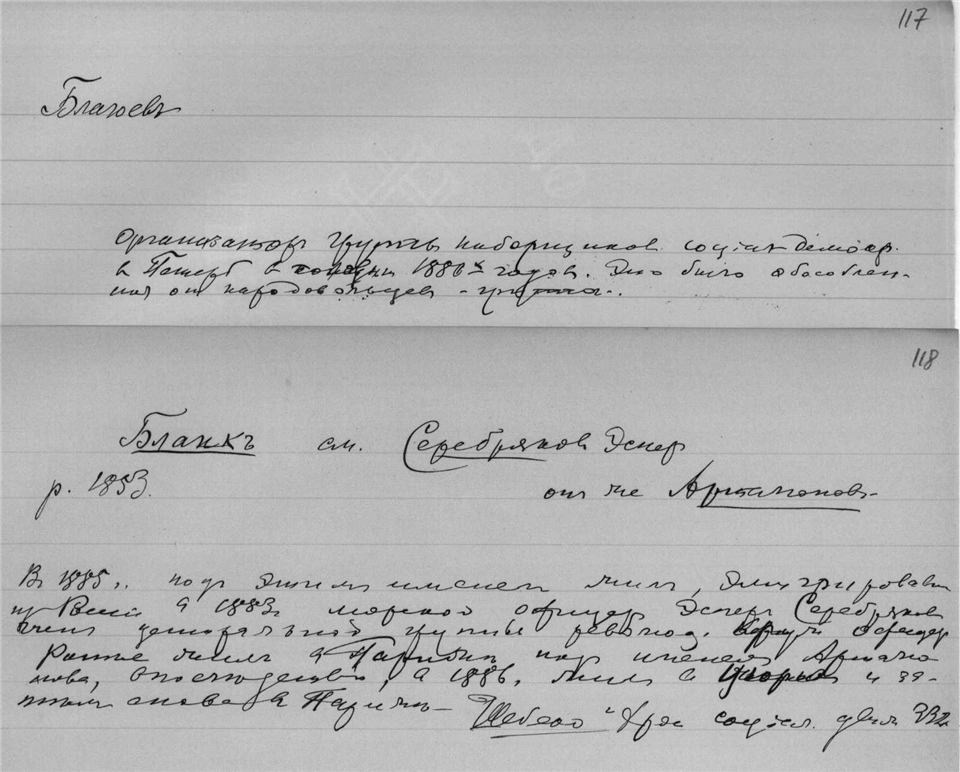 117
Благоевъ
Организаторъ группъ наборщиков социал демокр.
в Петерб в 1886х годов. Это было обособлен-
ная от народовольцев - группа.
118
Бланкъ см. Серебряков Эспер
р. 1853. он же Артамоновъ
В 1885 г. подъ этимъ именемъ жилъ, эмигрировавъ
из 1883 морской офицер Эсперъ Серебряков
член центральной группы революц. офицер
Ранее жилъ в Париже под именемъ Артамо
нова, впоследствии, в 1886, жилъ в и за-
тем снова в Париже - Шебеко "Хрон социал. движ 332